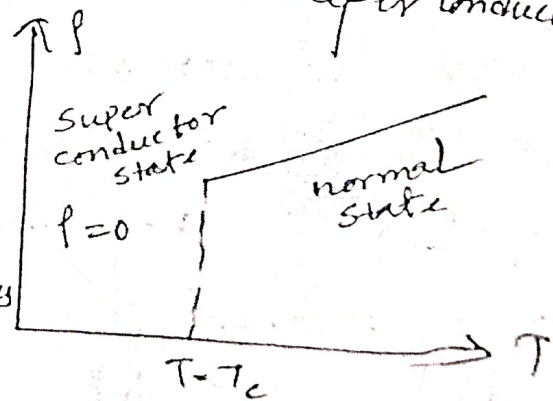 ρ
super
conductor
state
ρ=0
normal
state
T
T=T_c